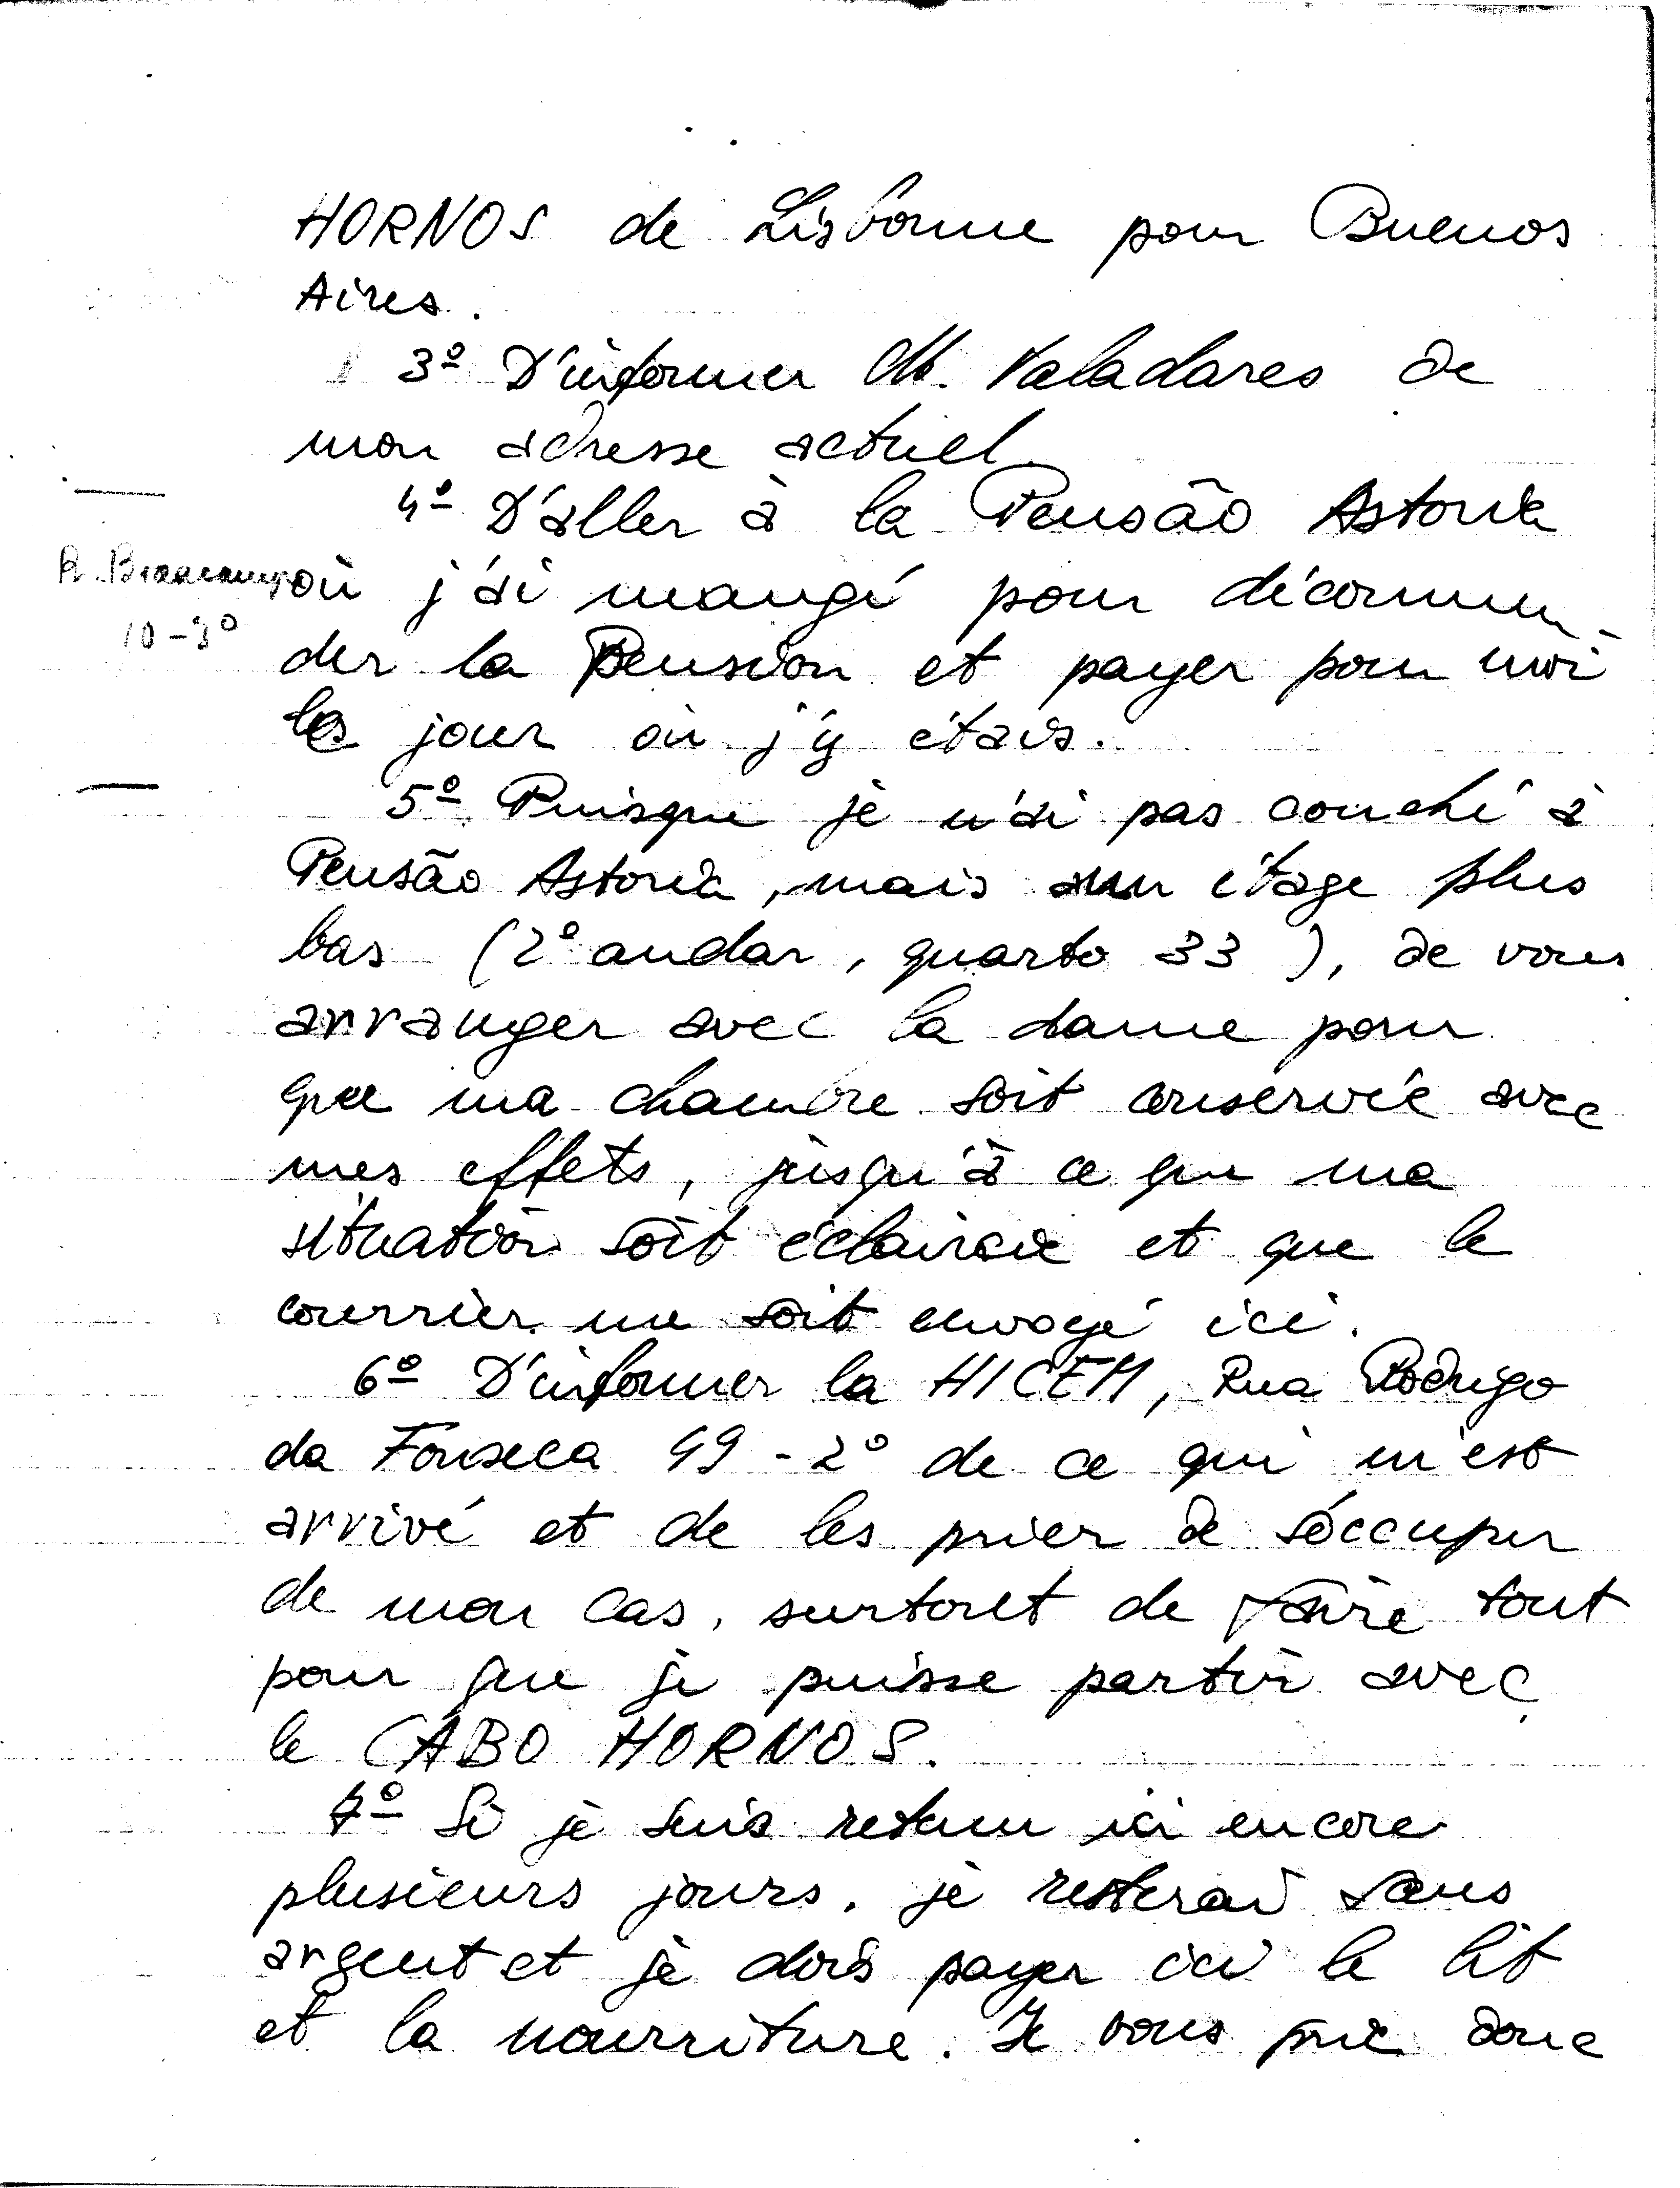 HORNOS de Lisbonne pour Buenos
Aires.
3º D'informer M. Valadares de
mon adresse actuel.
4º D'aller à la Pensão Astoria
R. Braancamp
10-3º
où j'ai mangé pour décomman-
der la Pension et payer pour moi
les jour où j'y étais.
5º Puisque je n'ai pas couché à
Pensão Astoria, mais un étage plus
bas (2º andar, quarto 33), de vous
arranger avec la dame pour
que ma chambre soit conservée avec
mes effets, jusqu'à ce que ma
situation soit éclaircie et que le
courrier me soit envoyé ici.
6º D'informer la HICEM, Rua Rodrigo
da Fonseca 49-2º de ce qui m'est
arrivé et de les prier de s'occuper
de mon cas, surtout de faire tout
pour que je puisse partir avec
le CABO HORNOS.
7º Si je suis retenu ici encore
plusieurs jours, je resterai sans
argent et je dois payer ici le lit
et la nourriture. Je vous prie donc